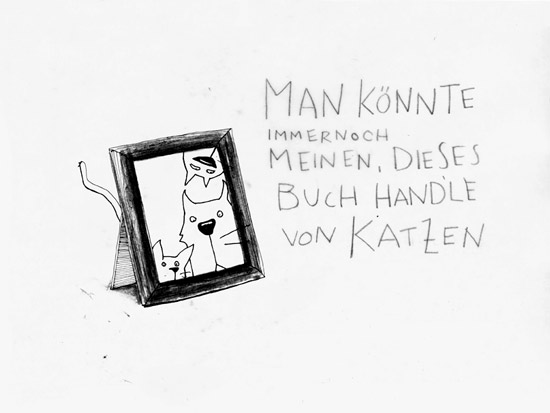 MAN KÖNNTE
IMMERNOCH
MEINEN, DIESES
BUCH HANDLE
VON KATZEN